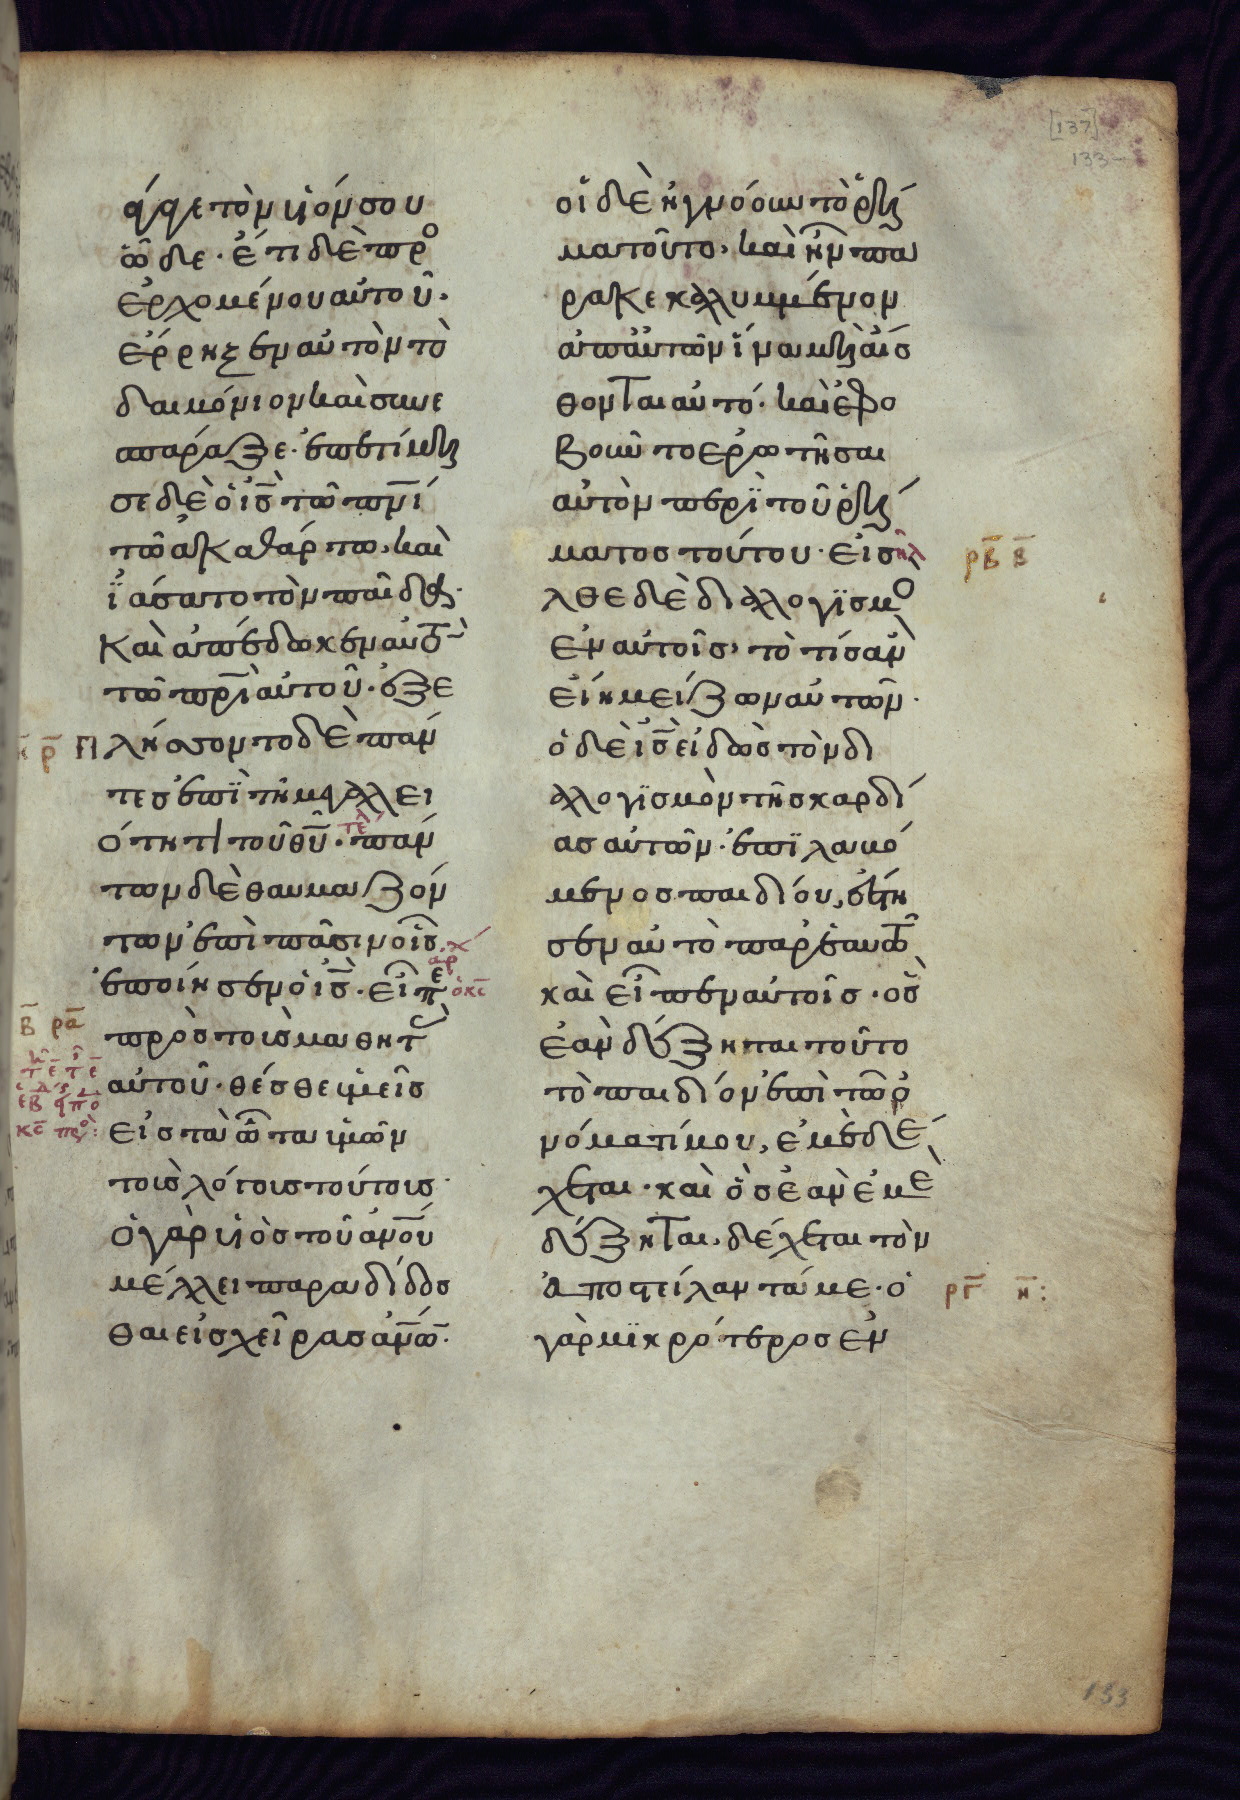 [137]
133
φέρε τὸν υἱόν σου
ὧδε· ἔτι δὲ προ
ἐρχομένου αὐτοῦ·
ἔρρηξεν αὐτὸν τὸ
δαιμόνιον καὶ συνε
σπάραξε· ἐπετίμη
σε δὲ ὁ ις̅ τῶ πν̅ι
τῶ ἀκαθάρτω, καὶ
ἰάσατο τὸν παῖδα·
Καὶ ἀπέδωκεν αὐτὸν
τῶ πρ̅ὶ αὐτοῦ· ἐξε
Πλήσσοντο δὲ πάν
τες ἐπὶ τῆ μεγαλει
ότητι τοῦ θυ̅· πάν
των δὲ θαυμαζόν
των ἐπὶ πᾶσιν οἷς
ἐποίησεν ὁ ις̅· εἶπε
πρὸς τοὺς μαθητὰς
αὐτοῦ· θέσθε ὑμεῖς
εἰς τὰ ὦτα ὑμῶν
τοὺς λόγους τούτους·
ὁ γὰρ υἱὸς τοῦ αν̅ου
μέλλει παραδίδοσ
θαι εἰς χεῖρας αν̅ων·
οἱ δὲ ἠγνόουν τὸ ῥῆ
μα τοῦτο, καὶ ἦν πα
ρακεκαλυμμένον
ἀπ' αὐτῶν ἵνα μὴ αἴσ
θονται αὐτό· καὶ ἐφο
βοῦντο ἐρωτῆσαι
αὐτὸν περὶ τοῦ ῥή
ματος τούτου· εἰσῆ
λθε δὲ διαλογισμὸς
ἐν αὐτοῖς, τὸ τίς ἂν
εἴη μείζων αὐτῶν·
ὁ δὲ ις̅ εἰδὼς τὸν δι
αλογισμὸν τῆς καρδί
ας αὐτῶν· ἐπιλαβό
μενος παιδίου, ἔστη
σεν αὐτὸ παρ' ἑαυτῶ
καὶ εἶπεν αὐτοῖς· ὃς
ἐὰν δέξηται τοῦτο
τὸ παιδίον ἐπὶ τῶ ὀ
νόματί μου, ἐμὲ δέ
χεται· καὶ ὃς ἐὰν ἐμὲ
δέξηται, δέχεται τὸν
ἀποστείλαντά με· ὁ
γὰρ μικρότερος ἐν
ρ̅
β̅ ρα̅
ρβ̅ β̅
ργ̅ η̅:
133